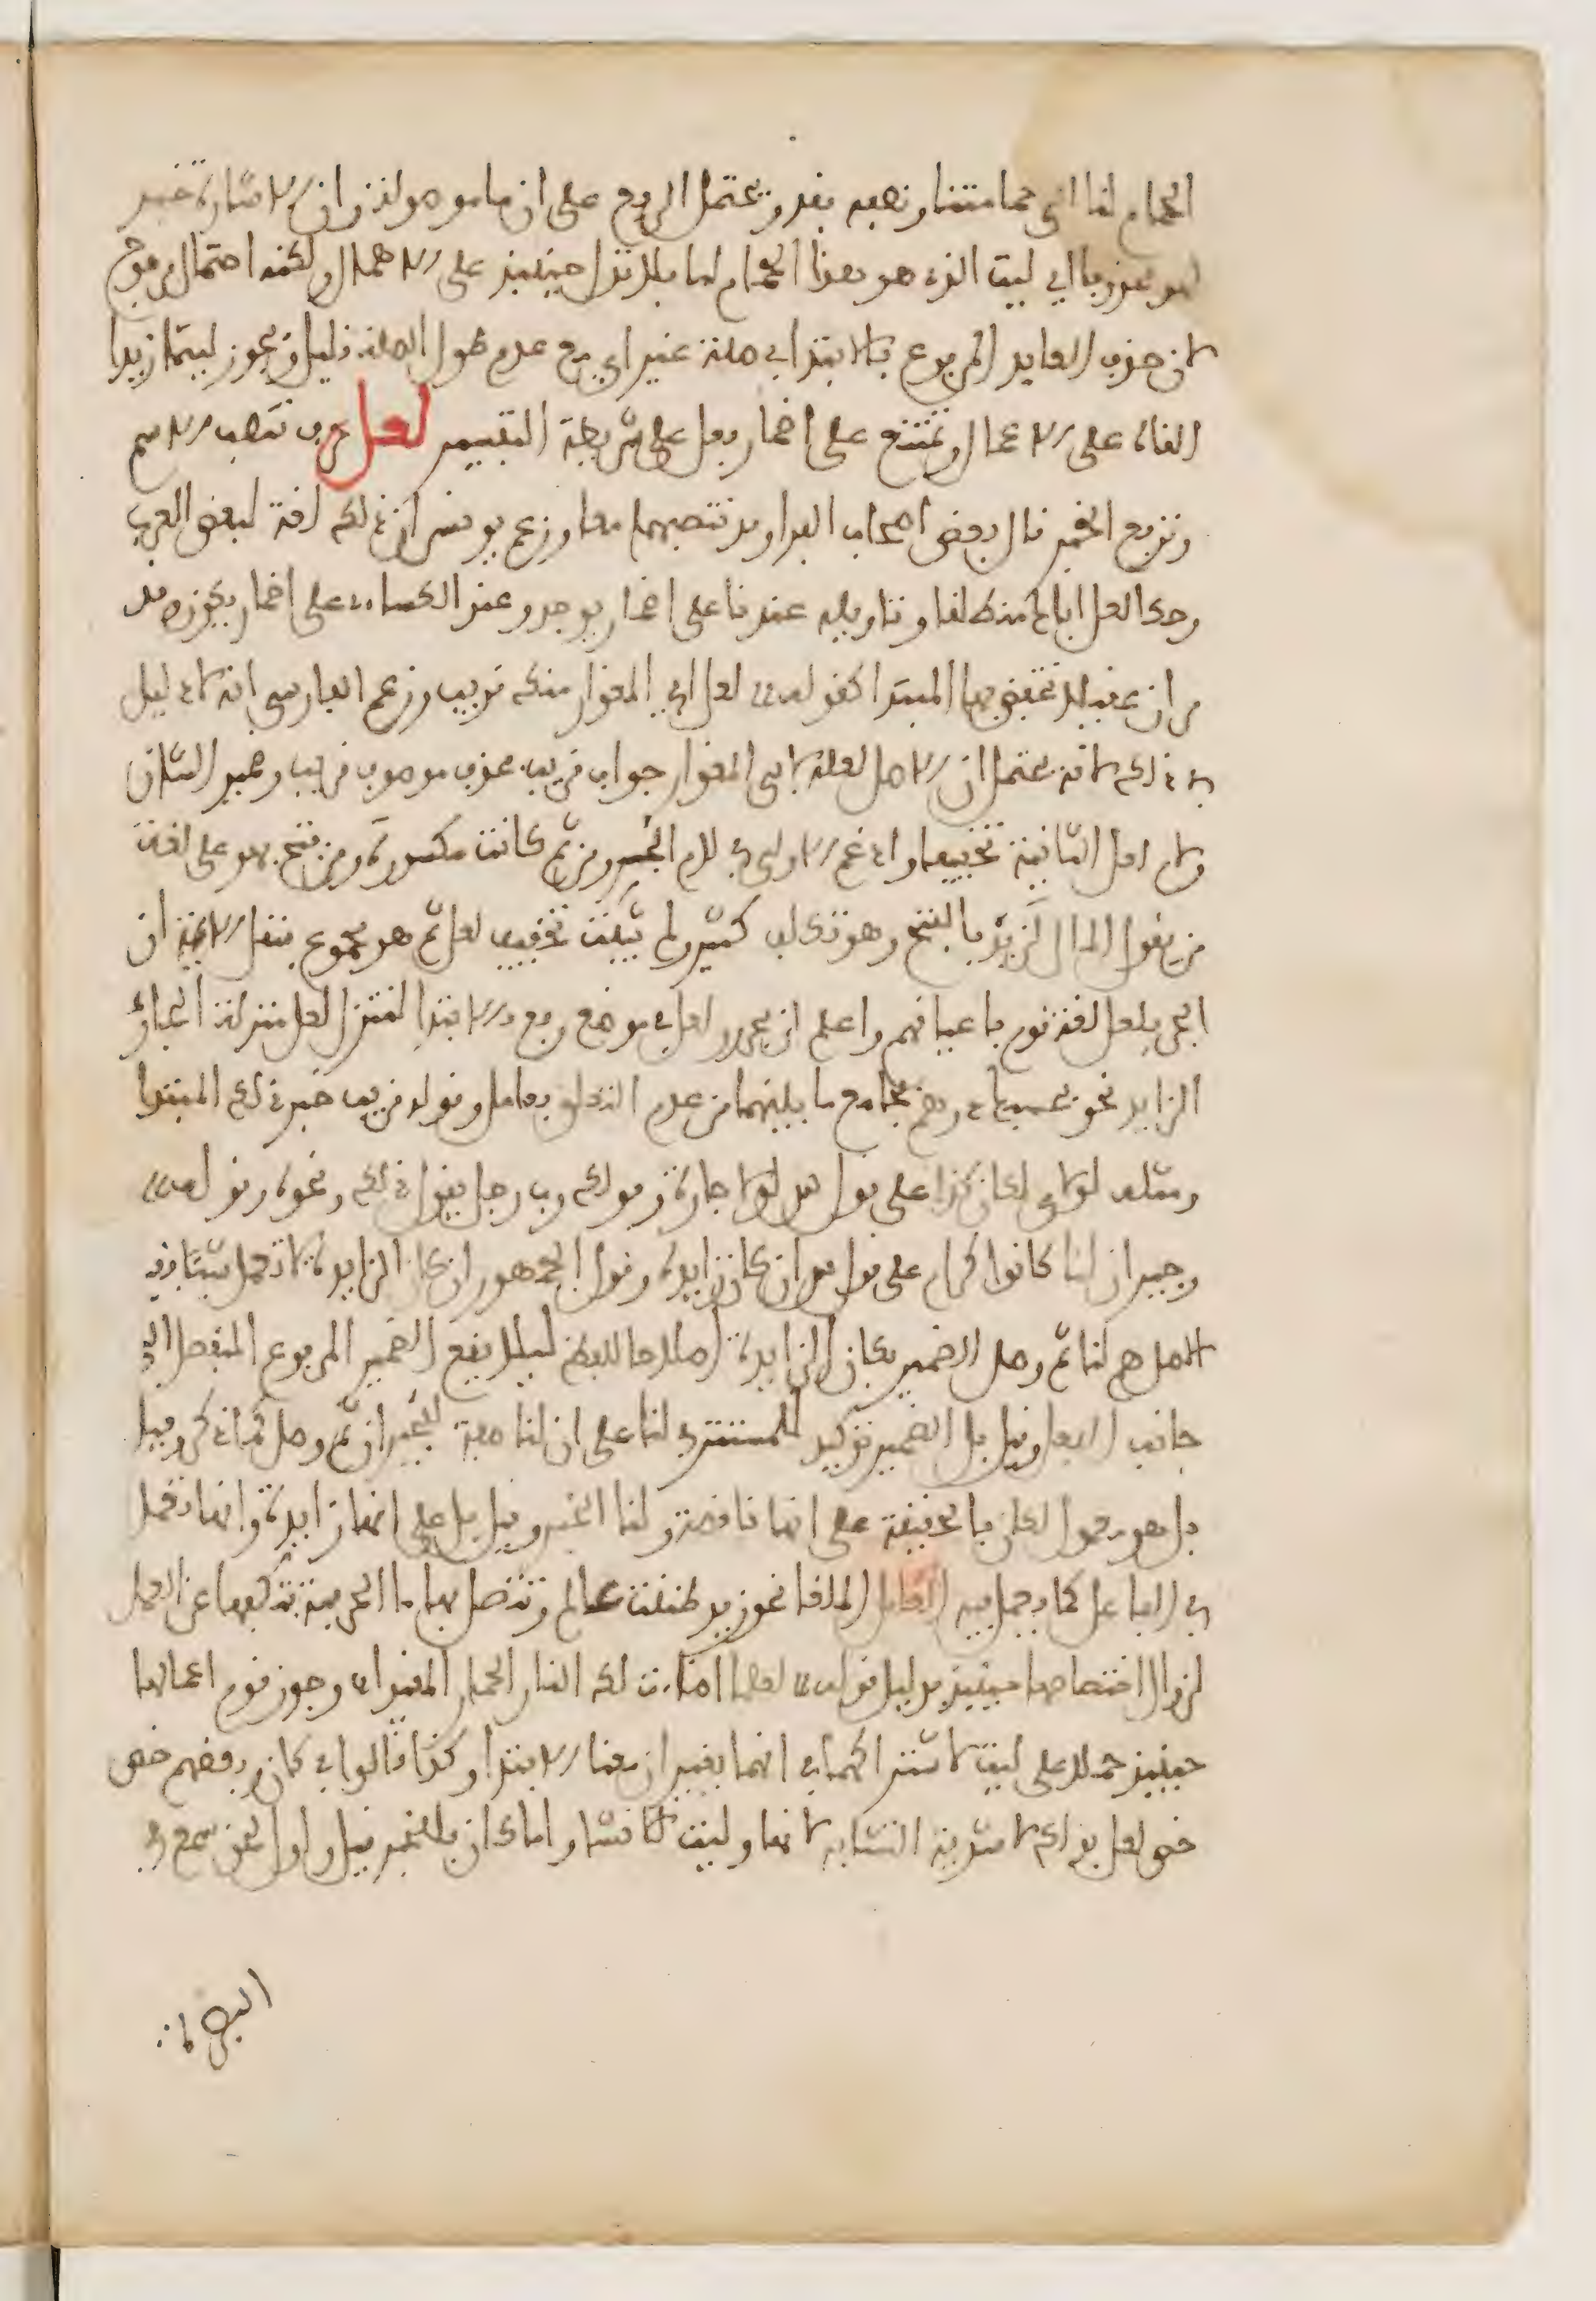 الحمام لنا الى حمامتنا ونصفه فقد ويحتمل الرفع على ان ما موصولة وان الاشارة خبر
لهو محذوفا اي ليت الذي هو هذا الحمام لنا فلا تدل حينئذ على الاهمال ولكنه احتمال مرجوح
لان حذف العايد المرفوع بالابتدا في صلة غير اي مع عدم طول الصلة قليل ويجوز ليتما زيدا
القاه على الاعمال ويمتنع على اضمار فعل على شريطة التفسير لعل حرف تنصب الاسم
وترفع الخبر قال بعض اصحاب الفرا وقد تنصبهما معا وزعم يونس ان ذلك لغة لبعض العرب
وحكا لعل اباك منطلقا وتاويله عندنا على اضمار يوجد وعند الكساءي على اضمار يكون وقد مر
مر ان عقيلا تخفض بها المبتدا كقوله لعل ابي المغوار منك قريب وزعم الفارسي انه لا دليل
في ذلك لانه يحتمل ان الاصل لعله لابي المغوار جواب قريب فحذف موصوف قريب وضمير الشان
ولام لعل الثانية تخفيفا وادغم الاولى في لام الجر ومن ثم كانت مكسورة ومن فتح فهو على لغة
من يقول المال لزيد بالفتح وهو تكلف كثير ولم يثبت تخفيف لعل ثم هو محجوج بنقل الايمة ان
الجر بلعل لغة قوم باعيانهم واعلم ان مجرور لعل في موضع رفع بالابتدا لتنزل لعل منزلة الجار
الزايد نحو بحسبك درهم بجامع ما بينهما من عدم التعلق بعامل وقوله قريب خبر ذلك المبتدا
ومثله لولاي لكان كذا على قول ان لولا جارة وقولك رب رجل يقول ذلك ونحوه وقوله
وجيران لنا كانوا كرام على قول ان كان زايدة وقول الجمهور ان كان الزايدة لا تعمل شيئا فقيل
الاصل هم لنا ثم وصل الضمير بكان الزايدة اصلاحا للفظ ليلا يقع الضمير المرفوع المنفصل الى
جانب الفعل وقيل بل الضمير توكيد للمستتر في لنا على ان لنا صفة لجيران ثم وصل لما ذكر وقيل
بل هو معمول لكان بالحقيقة على انها ناقصة ولنا الخبر وقيل بل على انها زايدة وانها تعمل
في الفاعل كما يعمل فيه العامل الملغا نحو زيد ظننت عالم وتتصل بها ما الحرفية فتكفها عن العمل
لزوال اختصاصها حينئذ بدليل قوله لعلما اضاءت لك النار الحمار المقيدا وجوز قوم اعمالها
حينئذ حملا على ليت لاشتراكهما في انهما يغيران معنا الابتدا وكذا قالوا في كان وبعضهم خص
خص لعل بذلك لاشدية التشابه لانها وليت للانشا واما كان فللخبر قيل واول لحن سمع في
البصرة